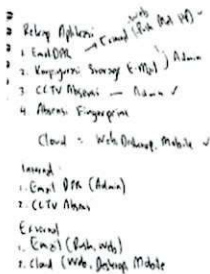 Rekap Aplikasi
Web
1. Email DPR → Email (Push Mail
2. Konfigurasi Storage E-Mail) Admin
3. CCTV Absensi — Admin ✓
4. Absensi Fingerprint
Cloud = Web, Desktop, Mobile ✓
Internal
1. Email DPR (Admin)
2. CCTV Absensi
External
1. Email (Push, Web)
2. Cloud (Web, Desktop, Mobile